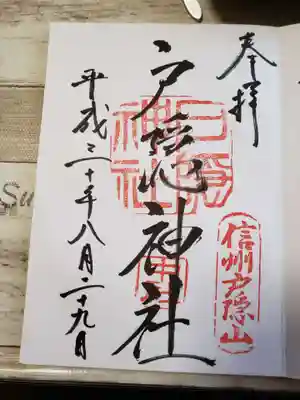 奉拝
信州戸隠山
戸隠神社
平成三十年八月二十九日